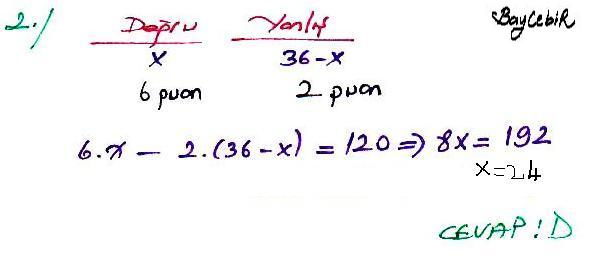 2./ Doğru Yanlış BayCebiR
x 36-x
6 puan 2 puan
6.x - 2.(36-x) = 120 => 8x = 192
x=24
CEVAP: D